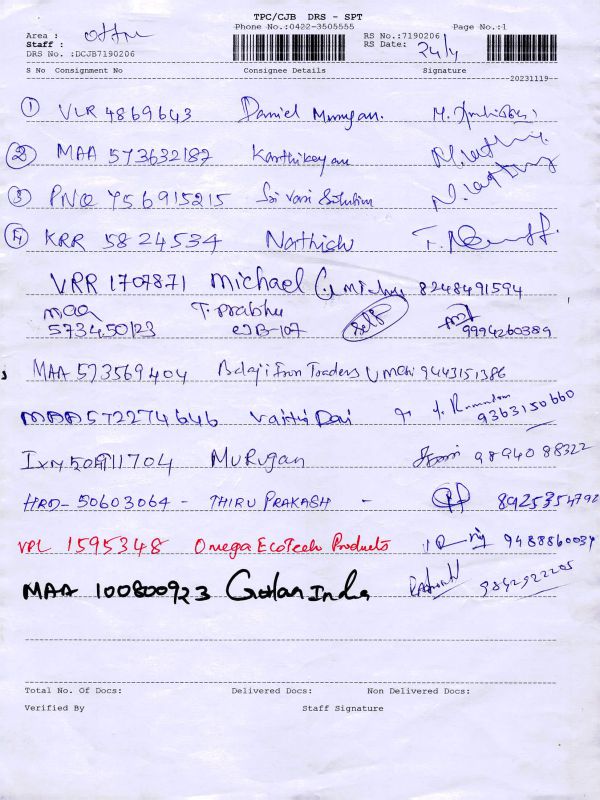 TPC/CJB DRS - SPT
Phone No.:0422-3505555 Page No.:1
Area : RS No.:7190206
Staff : RS Date: 24/4
DRS No. :DCJB7190206
S No Consignment No Consignee Details Signature
20231119
1 VLR 4869643 Daniel Murugan.
2 MAA 573632187 Karthikeyan
3 PNQ 756915215 Sri Vari Solution
4 KRR 5824534 Nathish
VRR 1707871 Michael G 8248491594
MAA T. Prabhu
573450123 CJB-107 Self 9994260389
MAA 573569404 Balaji Iron Traders 9443151386
MAA 572274646 9363150660
11704 Murugan 98940 88322
HRD- 50603064 - THIRU PRAKASH - 8925354792
VPL 1595348 Omega EcoTech Products
MAA 100800923 India 9892922205
Total No. Of Docs: Delivered Docs: Non Delivered Docs:
Verified By Staff Signature